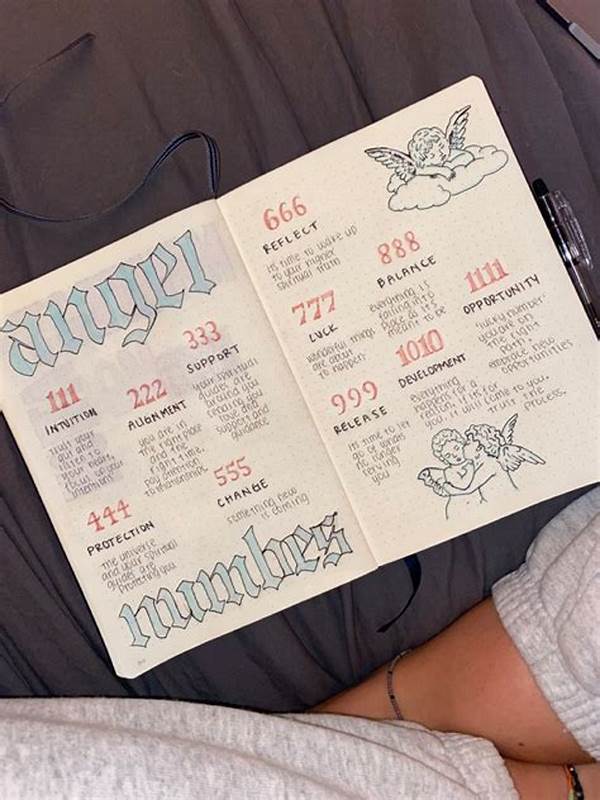 angel
111
INTUITION
trust your
gut and
listen to
your heart,
focus on your
intentions
222
ALIGNMENT
you are in
the right place
and the
right time.
pay attention
to relationships
333
SUPPORT
your spiritual
guides are
around you
sending you
love and
support and
guidance
444
PROTECTION
the universe
and your spiritual
guides are
protecting you
555
CHANGE
something new
is coming
numbers
666
REFLECT
it's time to wake up
to your higher
spiritual truth
777
LUCK
wonderful things
are about
to happen
888
BALANCE
everything is
falling into
place as it's
meant to be
999
RELEASE
it's time to let
go of whats
no longer
serving
you
1010
DEVELOPMENT
everything
happens for a
reason. if it's for
you, it will come to you.
trust the
process.
1111
OPPORTUNITY
'lucky number'
you are on
the right
path.
embrace new
opportunities